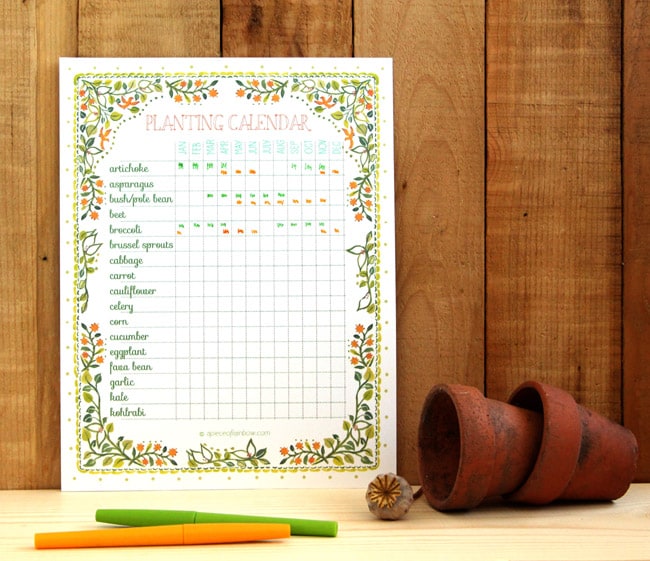 PLANTING CALENDAR
JAN FEB MAR APR MAY JUN JULY AUG SEP OCT NOV DEC
artichoke
asparagus
bush/pole bean
beet
broccoli
brussel sprouts
cabbage
carrot
cauliflower
celery
corn
cucumber
eggplant
fava bean
garlic
kale
kohlrabi
© apieceofrainbow.com